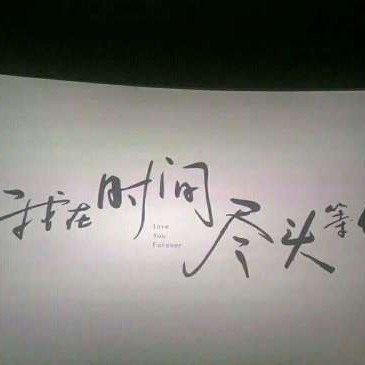 我在时间尽头等
Love
You
Forever